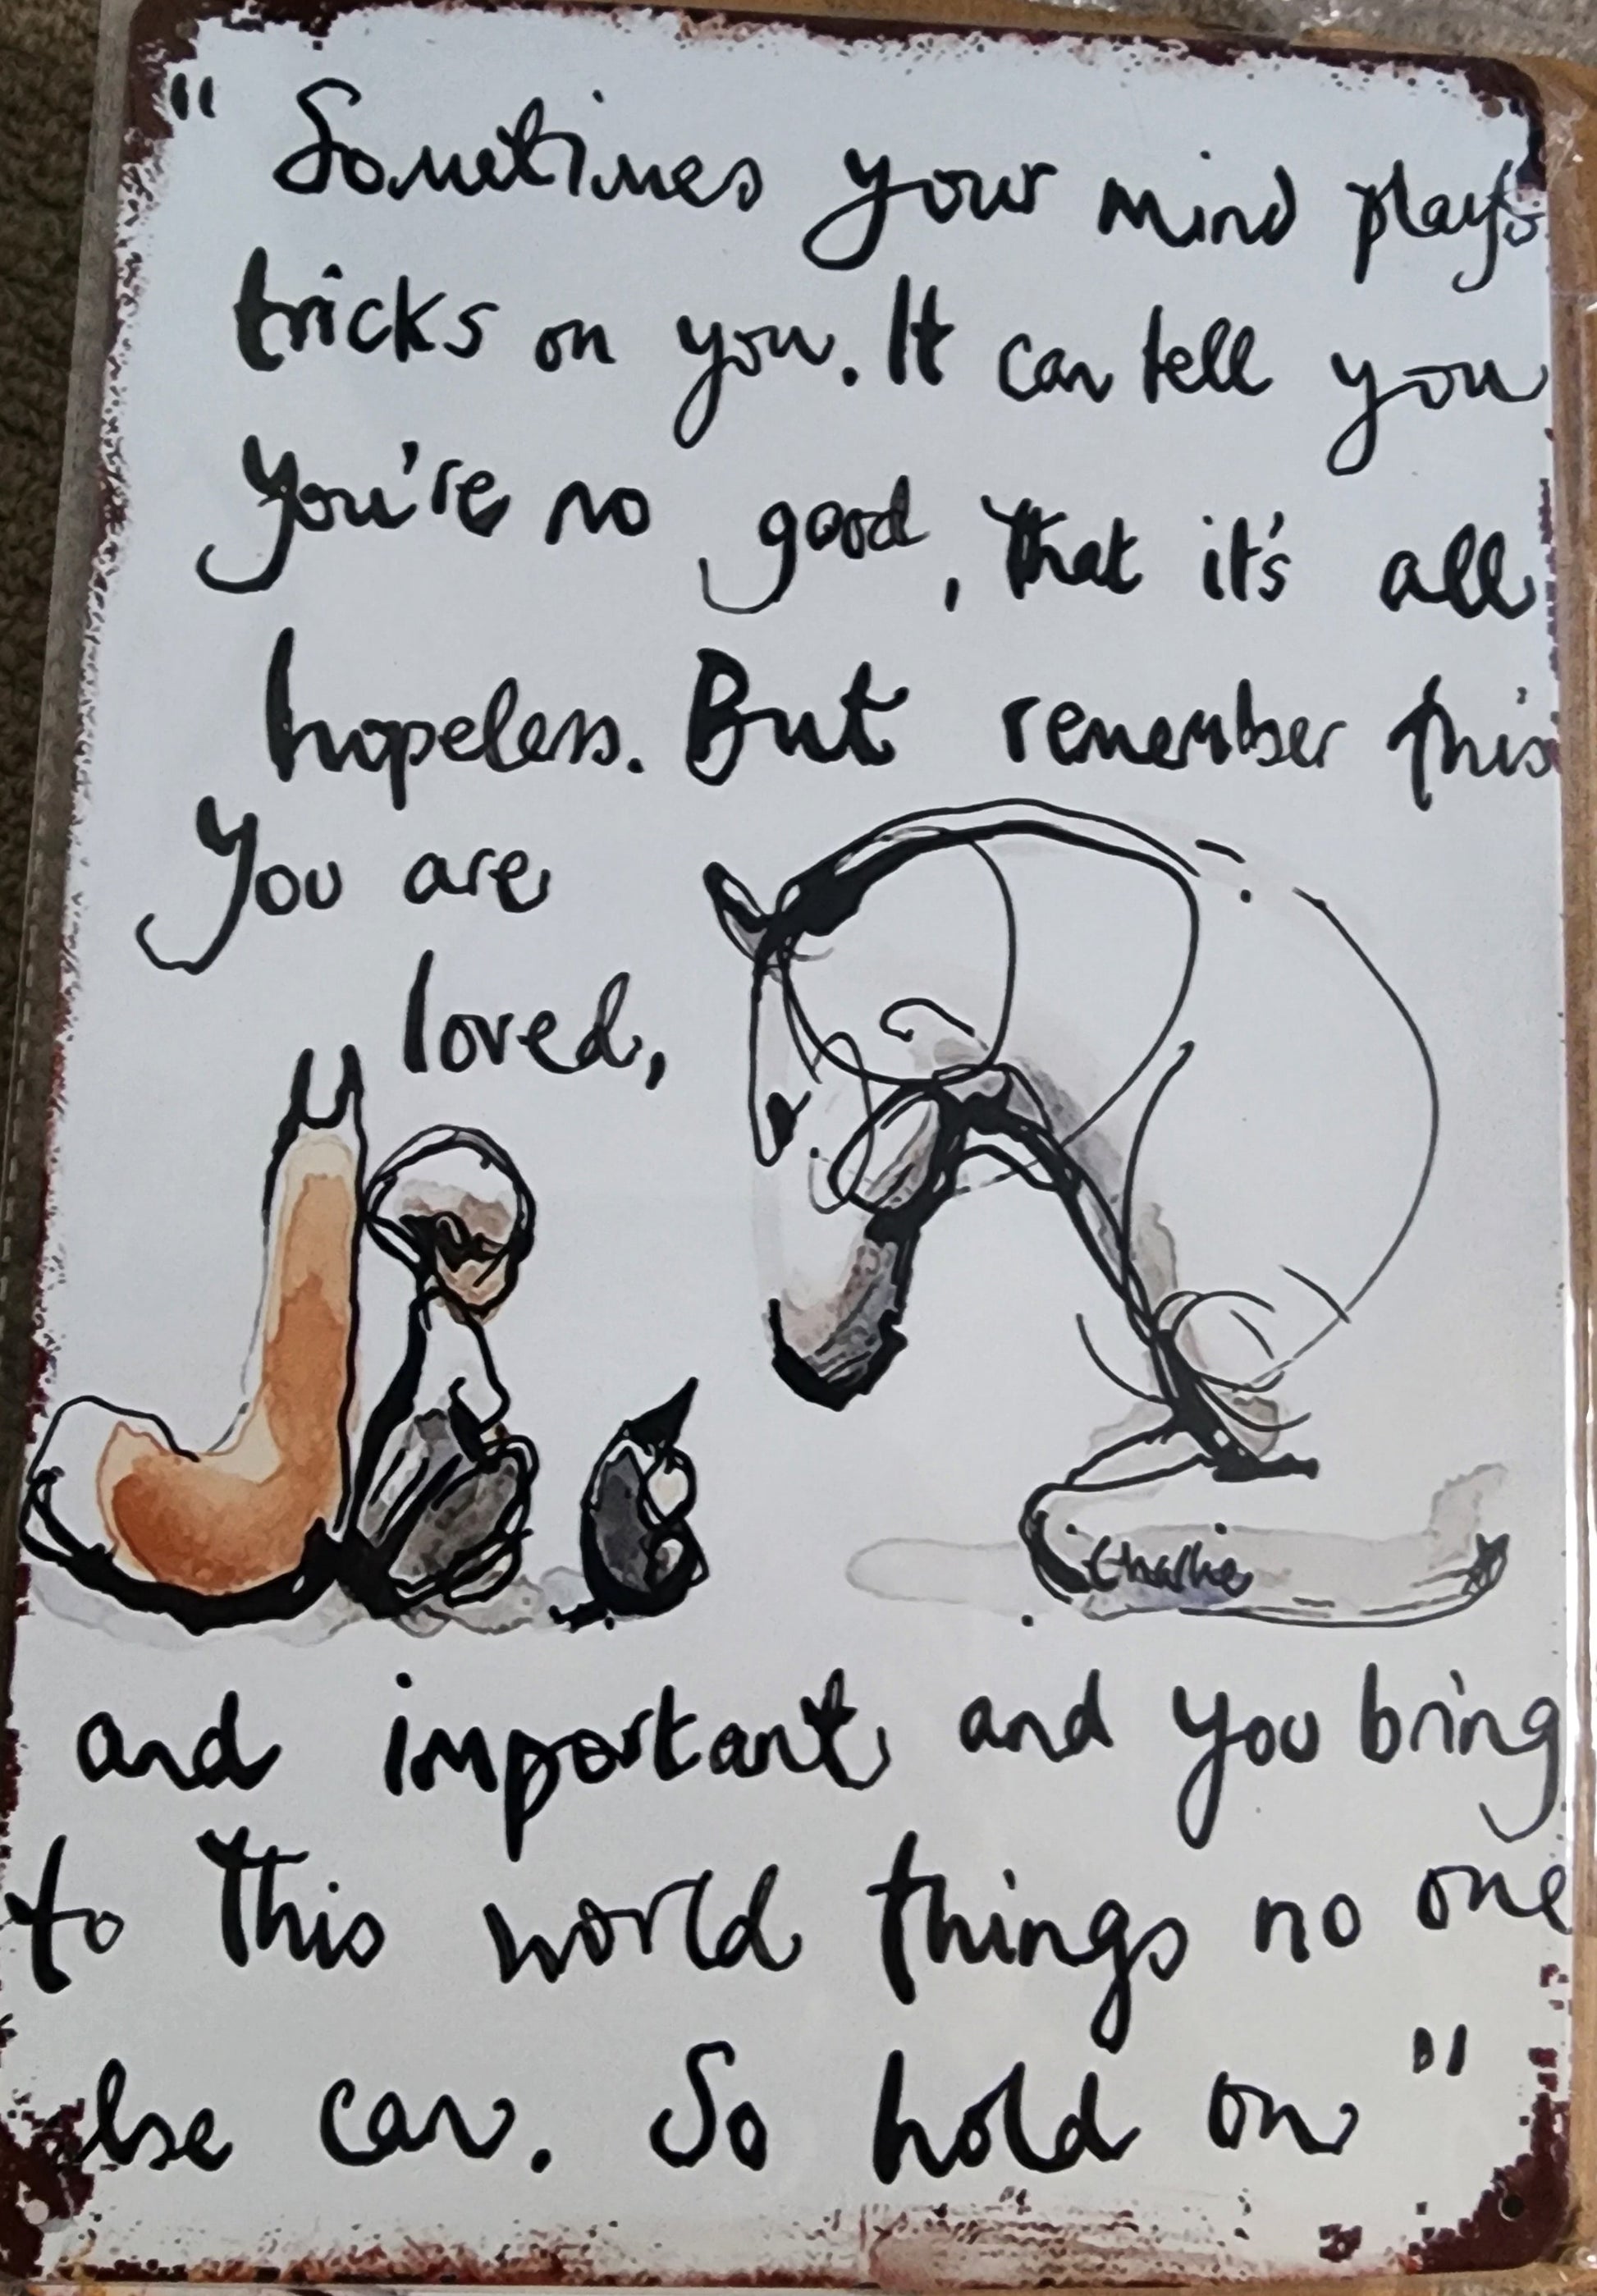 " Sometimes your mind plays
tricks on you. It can tell you
you're no good, that it's all
hopeless. But remember this
You are
loved,
Charlie
and important, and you bring
to this world things no one
else can. So hold on "